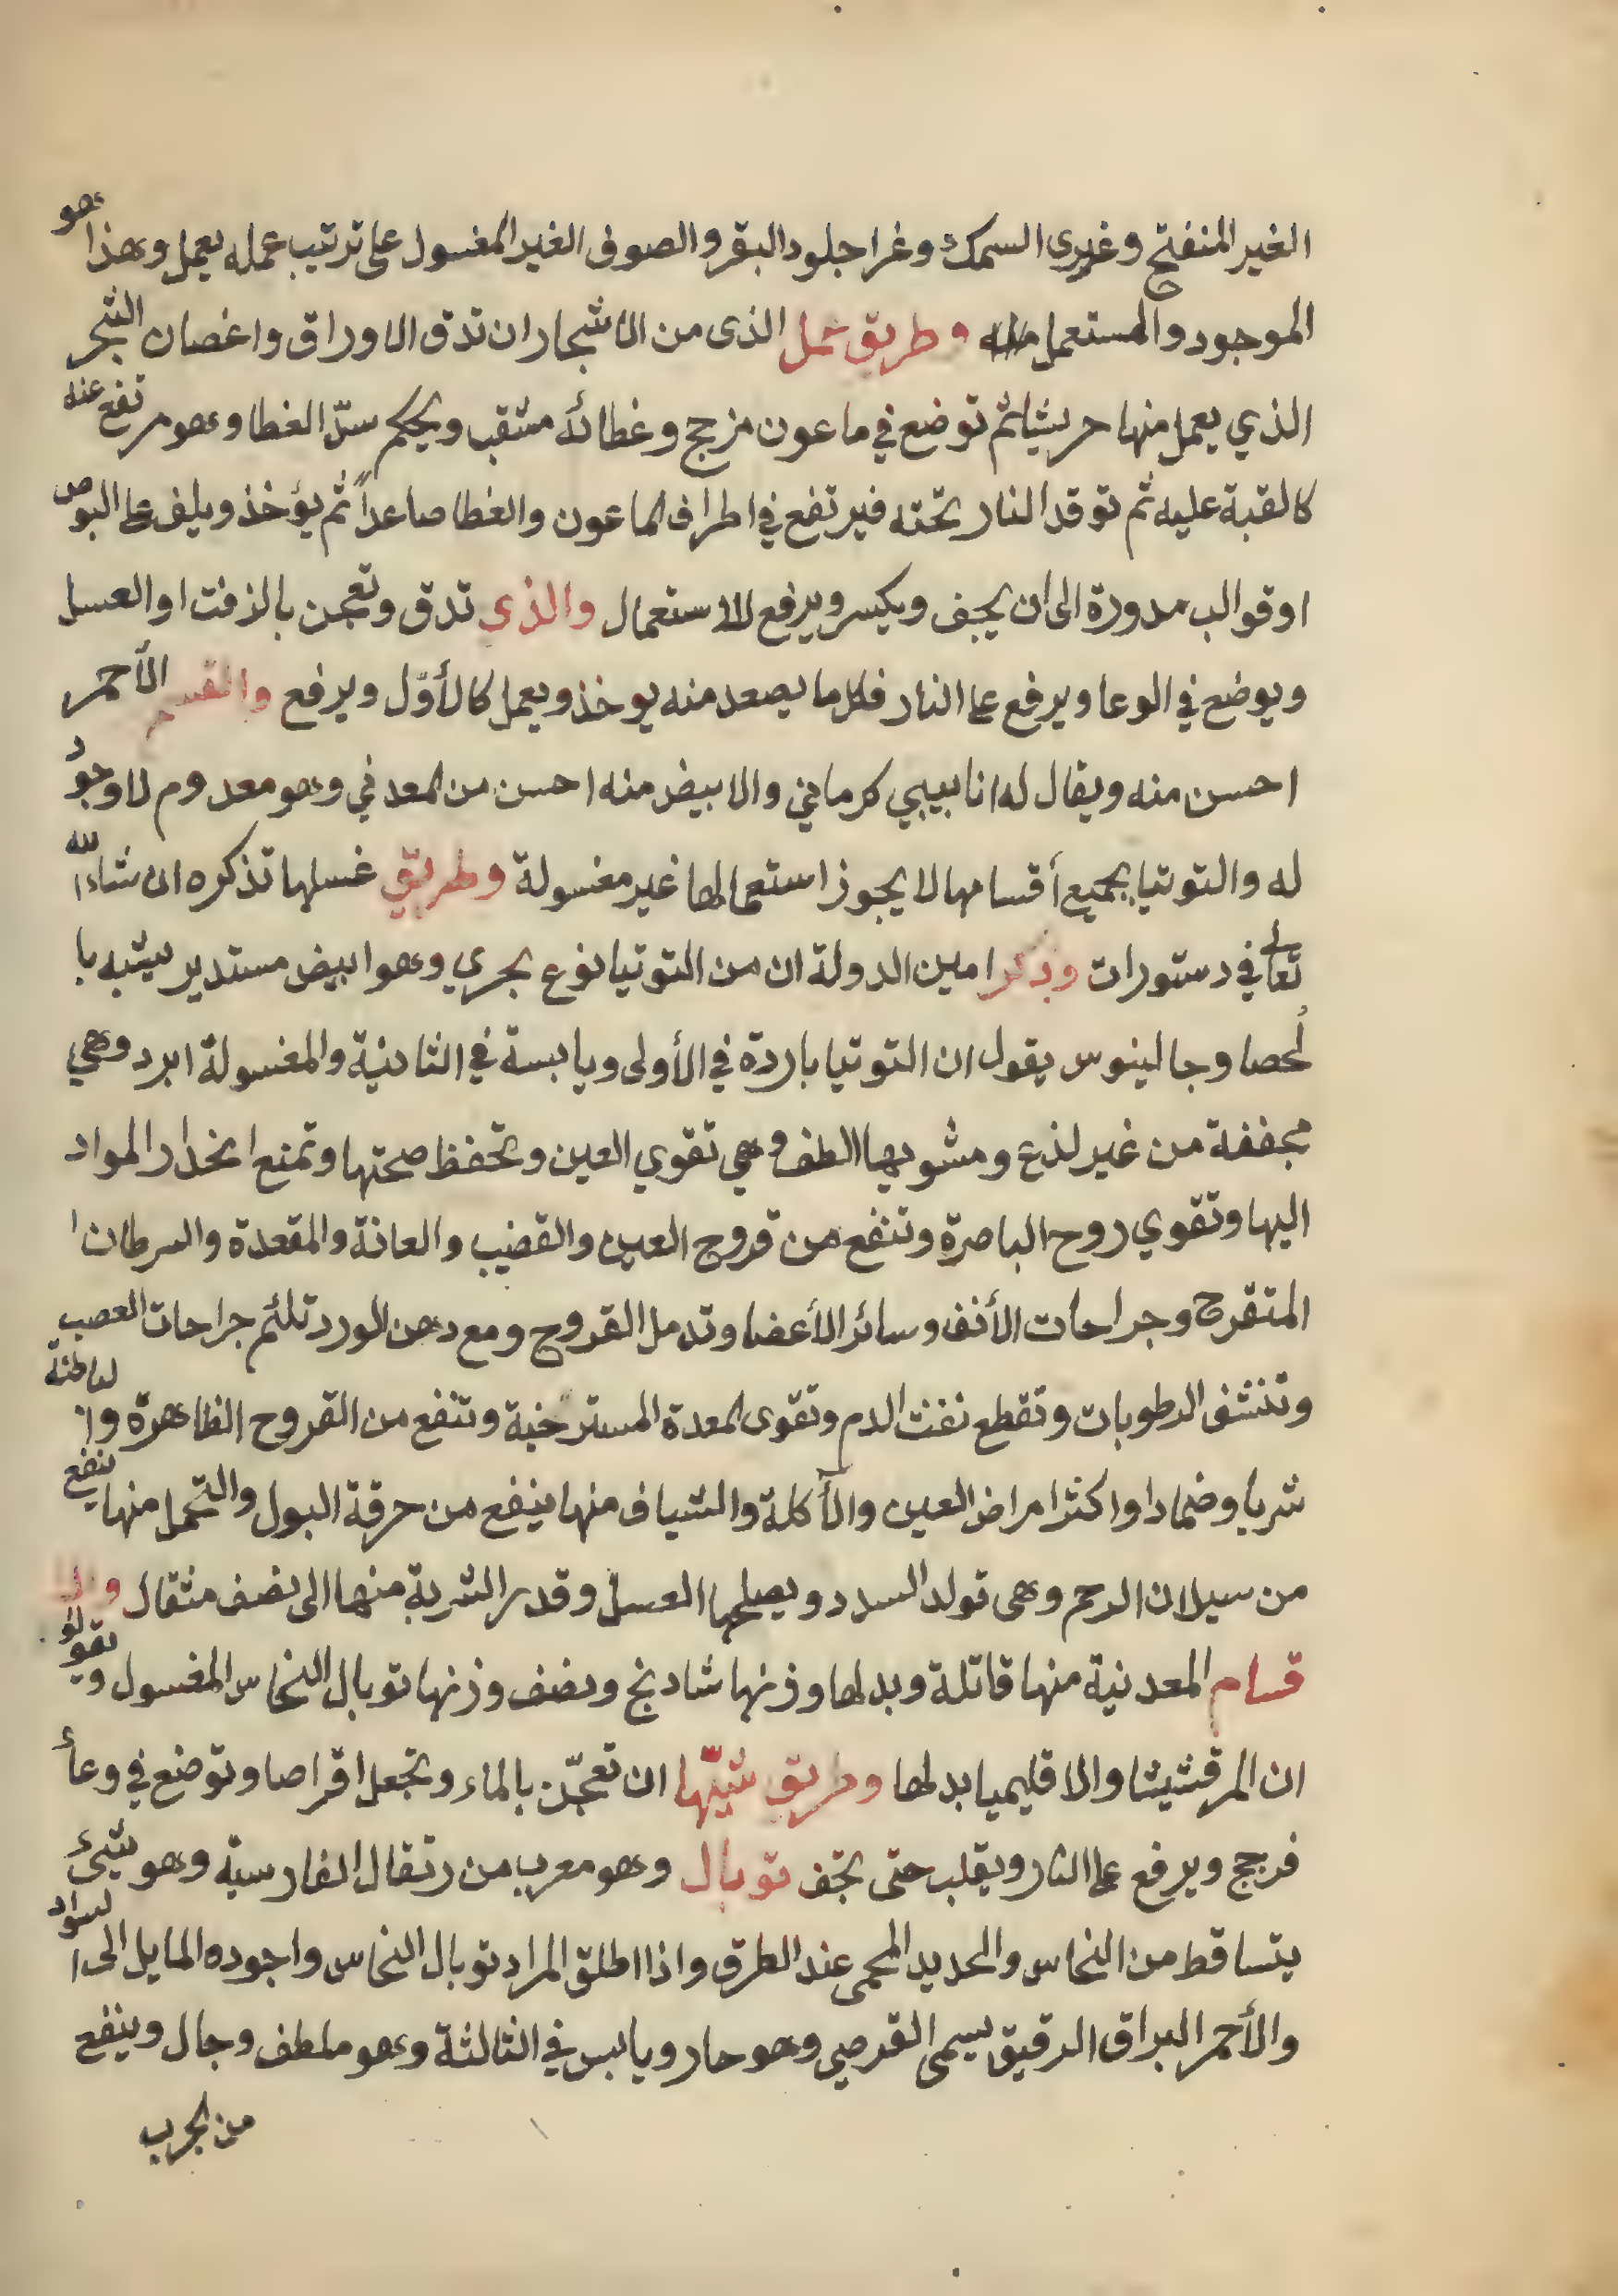 الغير المنفتح وغرى السمك وغرا جلود البقر والصوف الغير المغسول على ترتيب عمله يعمل وهذا هو
الموجود والمستعمل وطريق عمل الذى من الاشجار ان تدق الاوراق واغصان الشجر
الذي يعمل منها حريشا ثم توضع في ماعون مزجج وغطائه مثقب ويحكم سدّ الغطا وهو مرتفع عنه
كالقبة عليه ثم توقد النار تحته فيرتفع في اطراف الماعون والغطا صاعداً ثم يؤخذ ويلف على البوص
او قوالب مدورة الى ان يجف ويكسر ويرفع للاستعمال والذى تدق وتعجن بالزفت او العسل
ويوضع في الوعا ويرفع على النار فكلما يصعد منه يوخذ ويعمل كالأوّل ويرفع والقسم الأحمر
احسن منه ويقال له انابيبي كرماني والابيض منه احسن من المعدني وهو معدوم لا وجود
له والتوتيا بجميع أقسامها لا يجوز استعمالها غير مغسولة وطريق غسلها تذكره ان شاء الله
تعالى في دستورات وذكر امين الدولة ان من التوتيا نوع بحري وهو ابيض مستدير يشبه با
لحصا وجالينوس يقول ان التوتيا باردة في الأولى ويابسة في الثانية والمغسولة ابرد وهي
مجففة من غير لذع ومشويها الطف وهي تقوي العين وتحفظ صحتها وتمنع انحدار المواد
اليها وتقوي روح الباصرة وتنفع من قروح العين والقضيب والعانة والمقعدة والسرطان ا
المتقرح وجراحات الأنف وسائر الأعضا وتدمل القروح ومع دهن الورد تلئم جراحات العصب
وتنشف الرطوبات وتقطع نفث الدم وتقوى المعدة المسترخية وتنفع من القروح الظاهرة والباطنة
شربا وضمادا واكثر امراض العين والآكلة والشياف منها ينفع من حرقة البول والتحمل منها ينفع
من سيلان الرحم وهى تولد السدد ويصلحها العسل وقدر الشربة منها الى نصف مثقال والا
قسام المعدنية منها قاتلة وبدلها وزنها شادنج ونصف وزنها توبال النحاس المغسول ويقولو
ان المرقشيشا والاقليميا بدلها وطريق شيّها ان تعجّن بالماء وتجعل اقراصا وتوضع في وعأ
فرجج ويرفع على النار ويقلب حتى تجف توبال وهو معرب من رتقال الفارسية وهو شيئ
يتساقط من النحاس والحديد المحمى عند الطرق واذا اطلق المراد توبال النحاس واجوده المايل الى السواد
والأحمر البراق الرقيق يسمى القرصي وهو حار ويابس في الثالثة وهو ملطف وجال وينفع
من الجرب